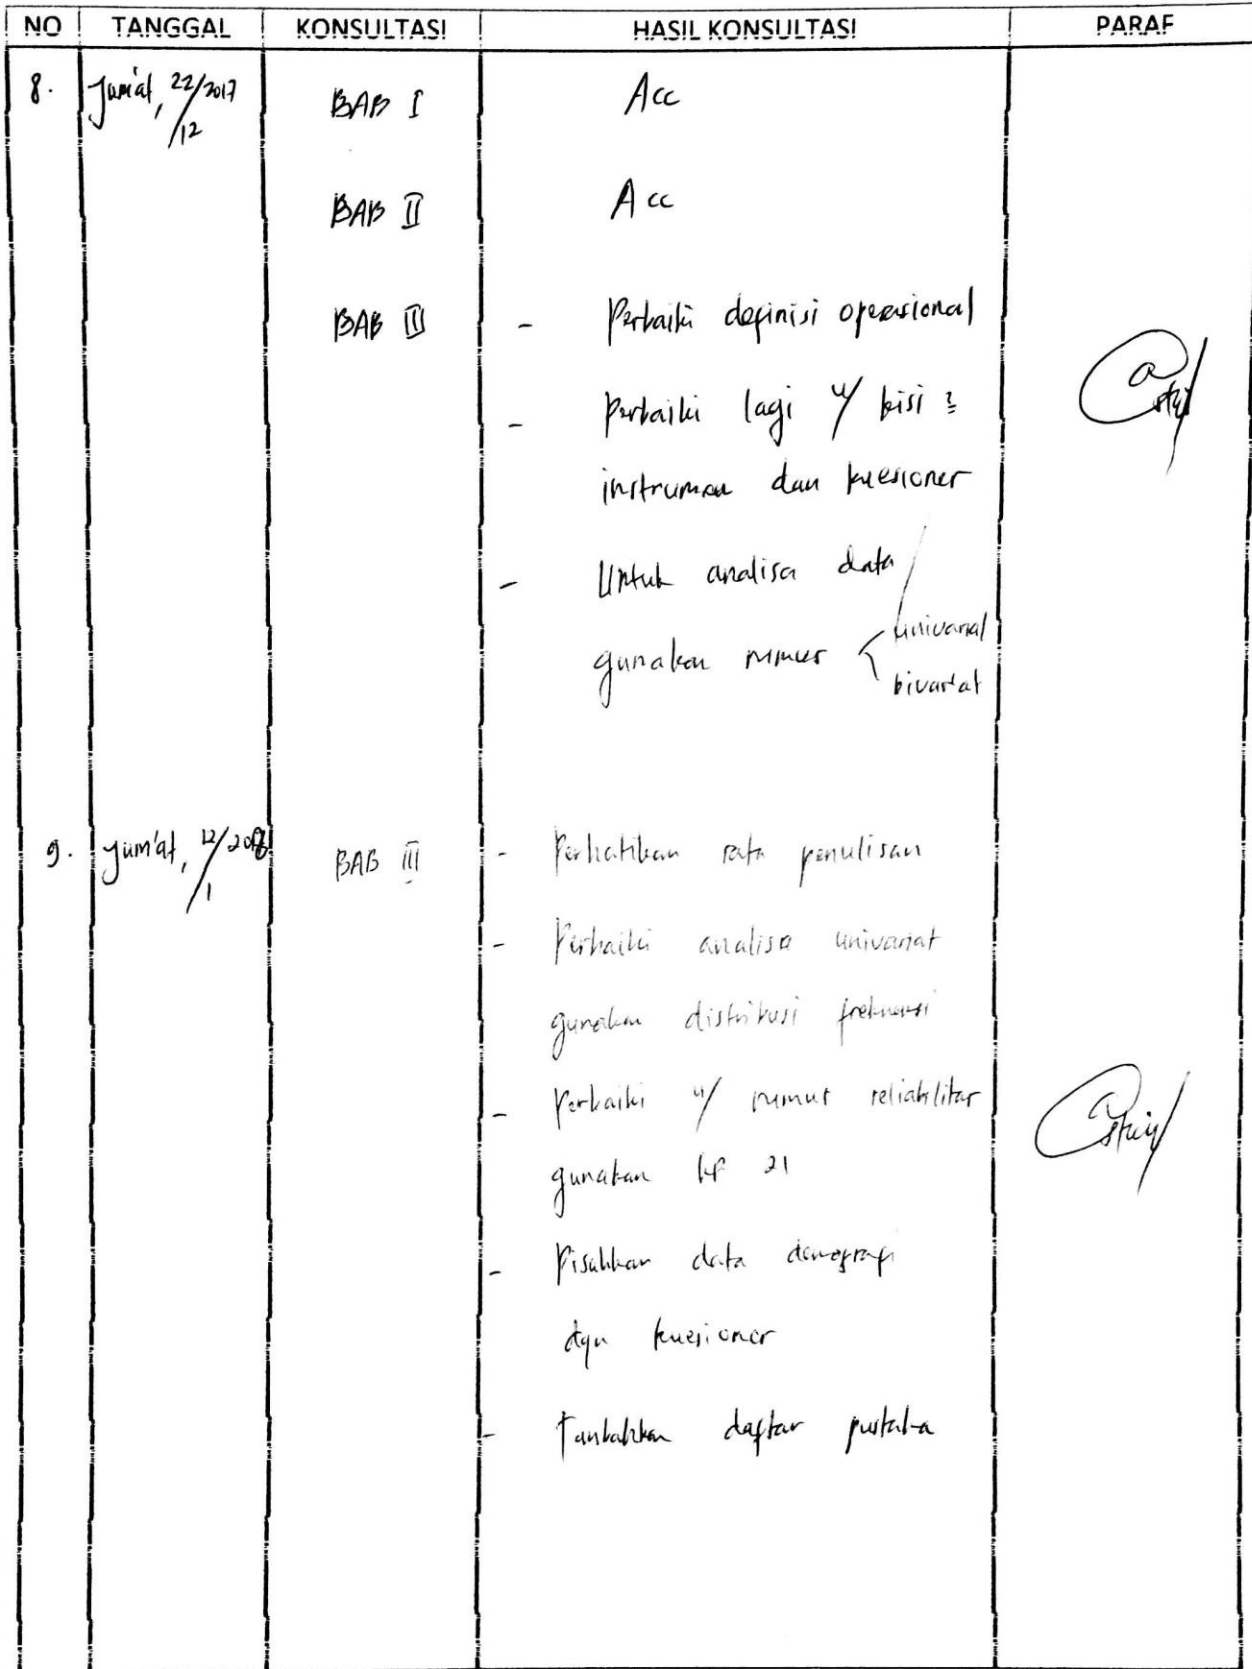 NO TANGGAL KONSULTASI HASIL KONSULTASI PARAF
8. Jum'at, 22/12 2017 BAB I Acc
BAB II Acc
BAB III - Perbaiki definisi operasional
- Perbaiki lagi u/ kisi 2
instrumen dan kuesioner
- Untuk analisa data
gunakan rumus < univariat
bivariat
9. Jum'at, 12/1 2018 BAB III - Perhatikan rata penulisan
- Perbaiki analisa univariat
gunakan distribusi frekuensi
- Perbaiki u/ rumus reliabilitas
gunakan 21
- Pisahkan data demografi
dgn kuesioner
- Tambahkan daftar pustaka